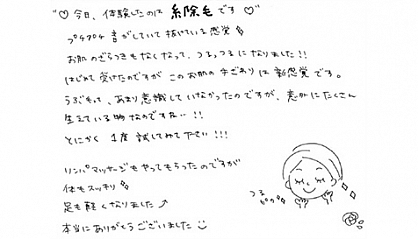 "♡今日、体験したのは 糸除毛です♡"
プチプチ音がしていて抜けている感覚
お肌のざらつきもなくなって、つるっつるになりました!!
はじめて受けたのですがこのお肌の手ざわりは新感覚です。
うぶ毛って、あまり意識していなかったのですが、意外にたくさん
生えている物なのですね…!!
とにかく1度試してみて下さい!!!
リンパマッサージもやってもらったのですが
体もスッキリ
足も軽くなりました↗
本当にありがとうございました
つる